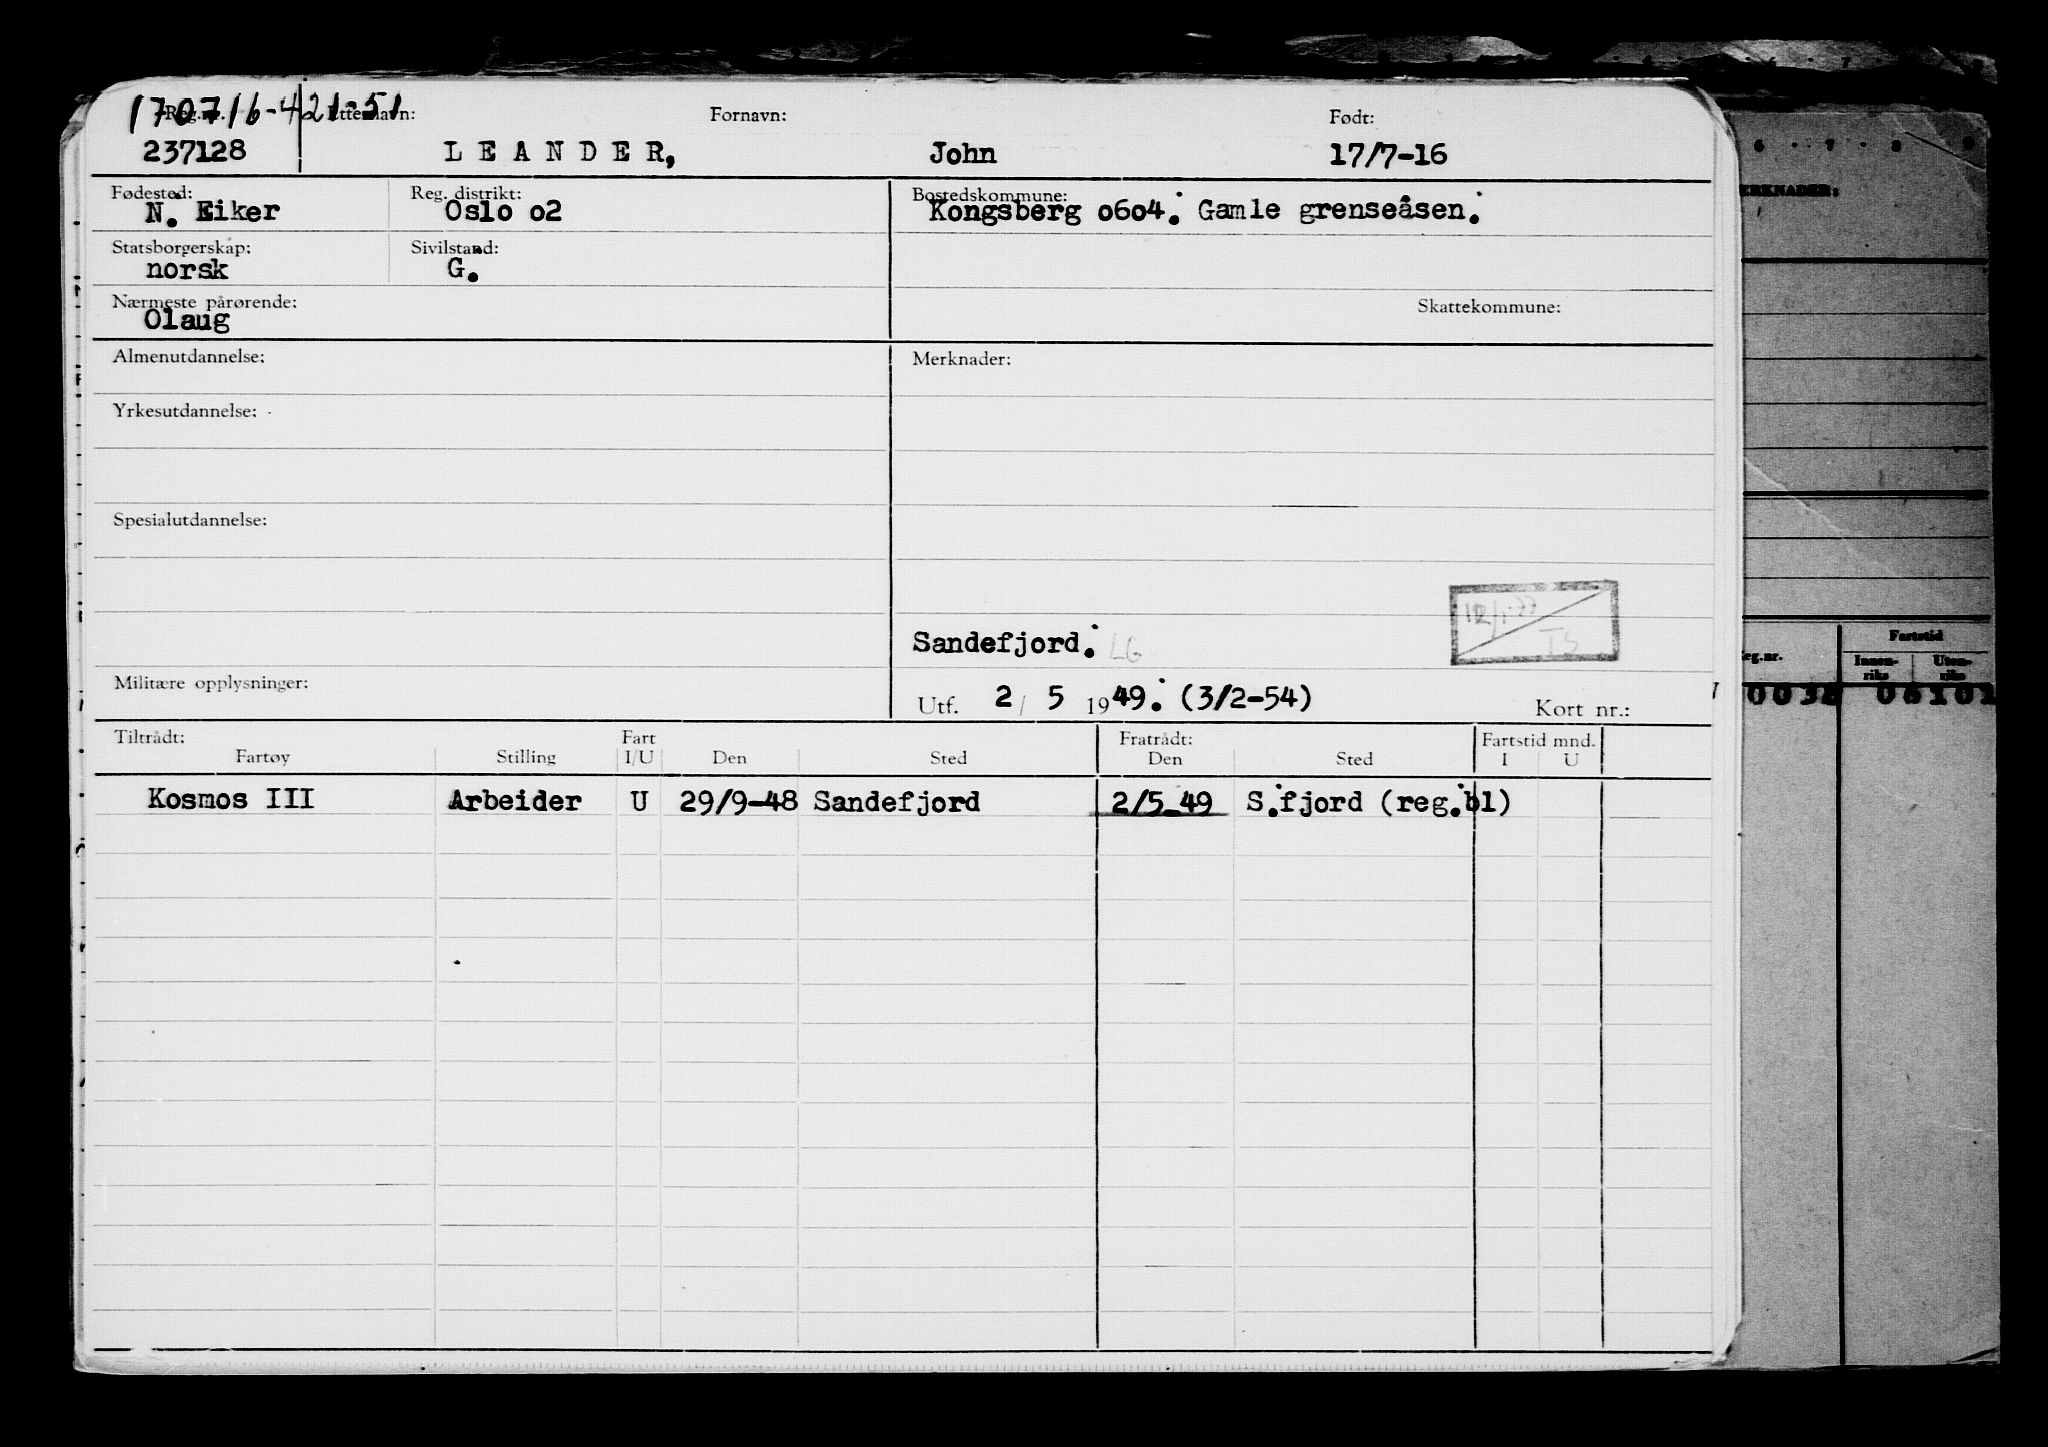 170716-42151
Reg.nr. Etternavn: Fornavn: Født:
237128 LEANDER, John 17/7-16
Fødested: Reg. distrikt: Bostedskommune:
N. Eiker Oslo o2 Kongsberg o6o4. Gamle grenseåsen.
Statsborgerskap: Sivilstand:
norsk G.
Nærmeste pårørende: Skattekommune:
Olaug
Almenutdannelse: Merknader:
Yrkesutdannelse:
Spesialutdannelse:
Sandefjord. LG
TS
Militære opplysninger:
Utf. 2/ 5 1949. (3/2-54) Kort nr.:
Tiltrådt: Fart Fratrådt: Fartstid mnd.
Fartøy Stilling I/U Den Sted Den Sted I U
Kosmos III Arbeider U 29/9-48 Sandefjord 2/5-49 S.fjord (reg.bl)
6 7 8 9
ERKNADER:
Fartstid
eg.nr. Innen-riks Uten-riks